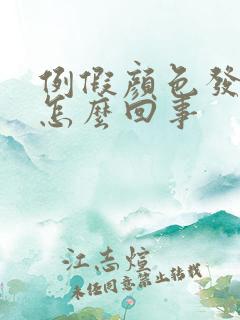 例假顏色發
怎麼回事
江志煊
未经同意禁止转载